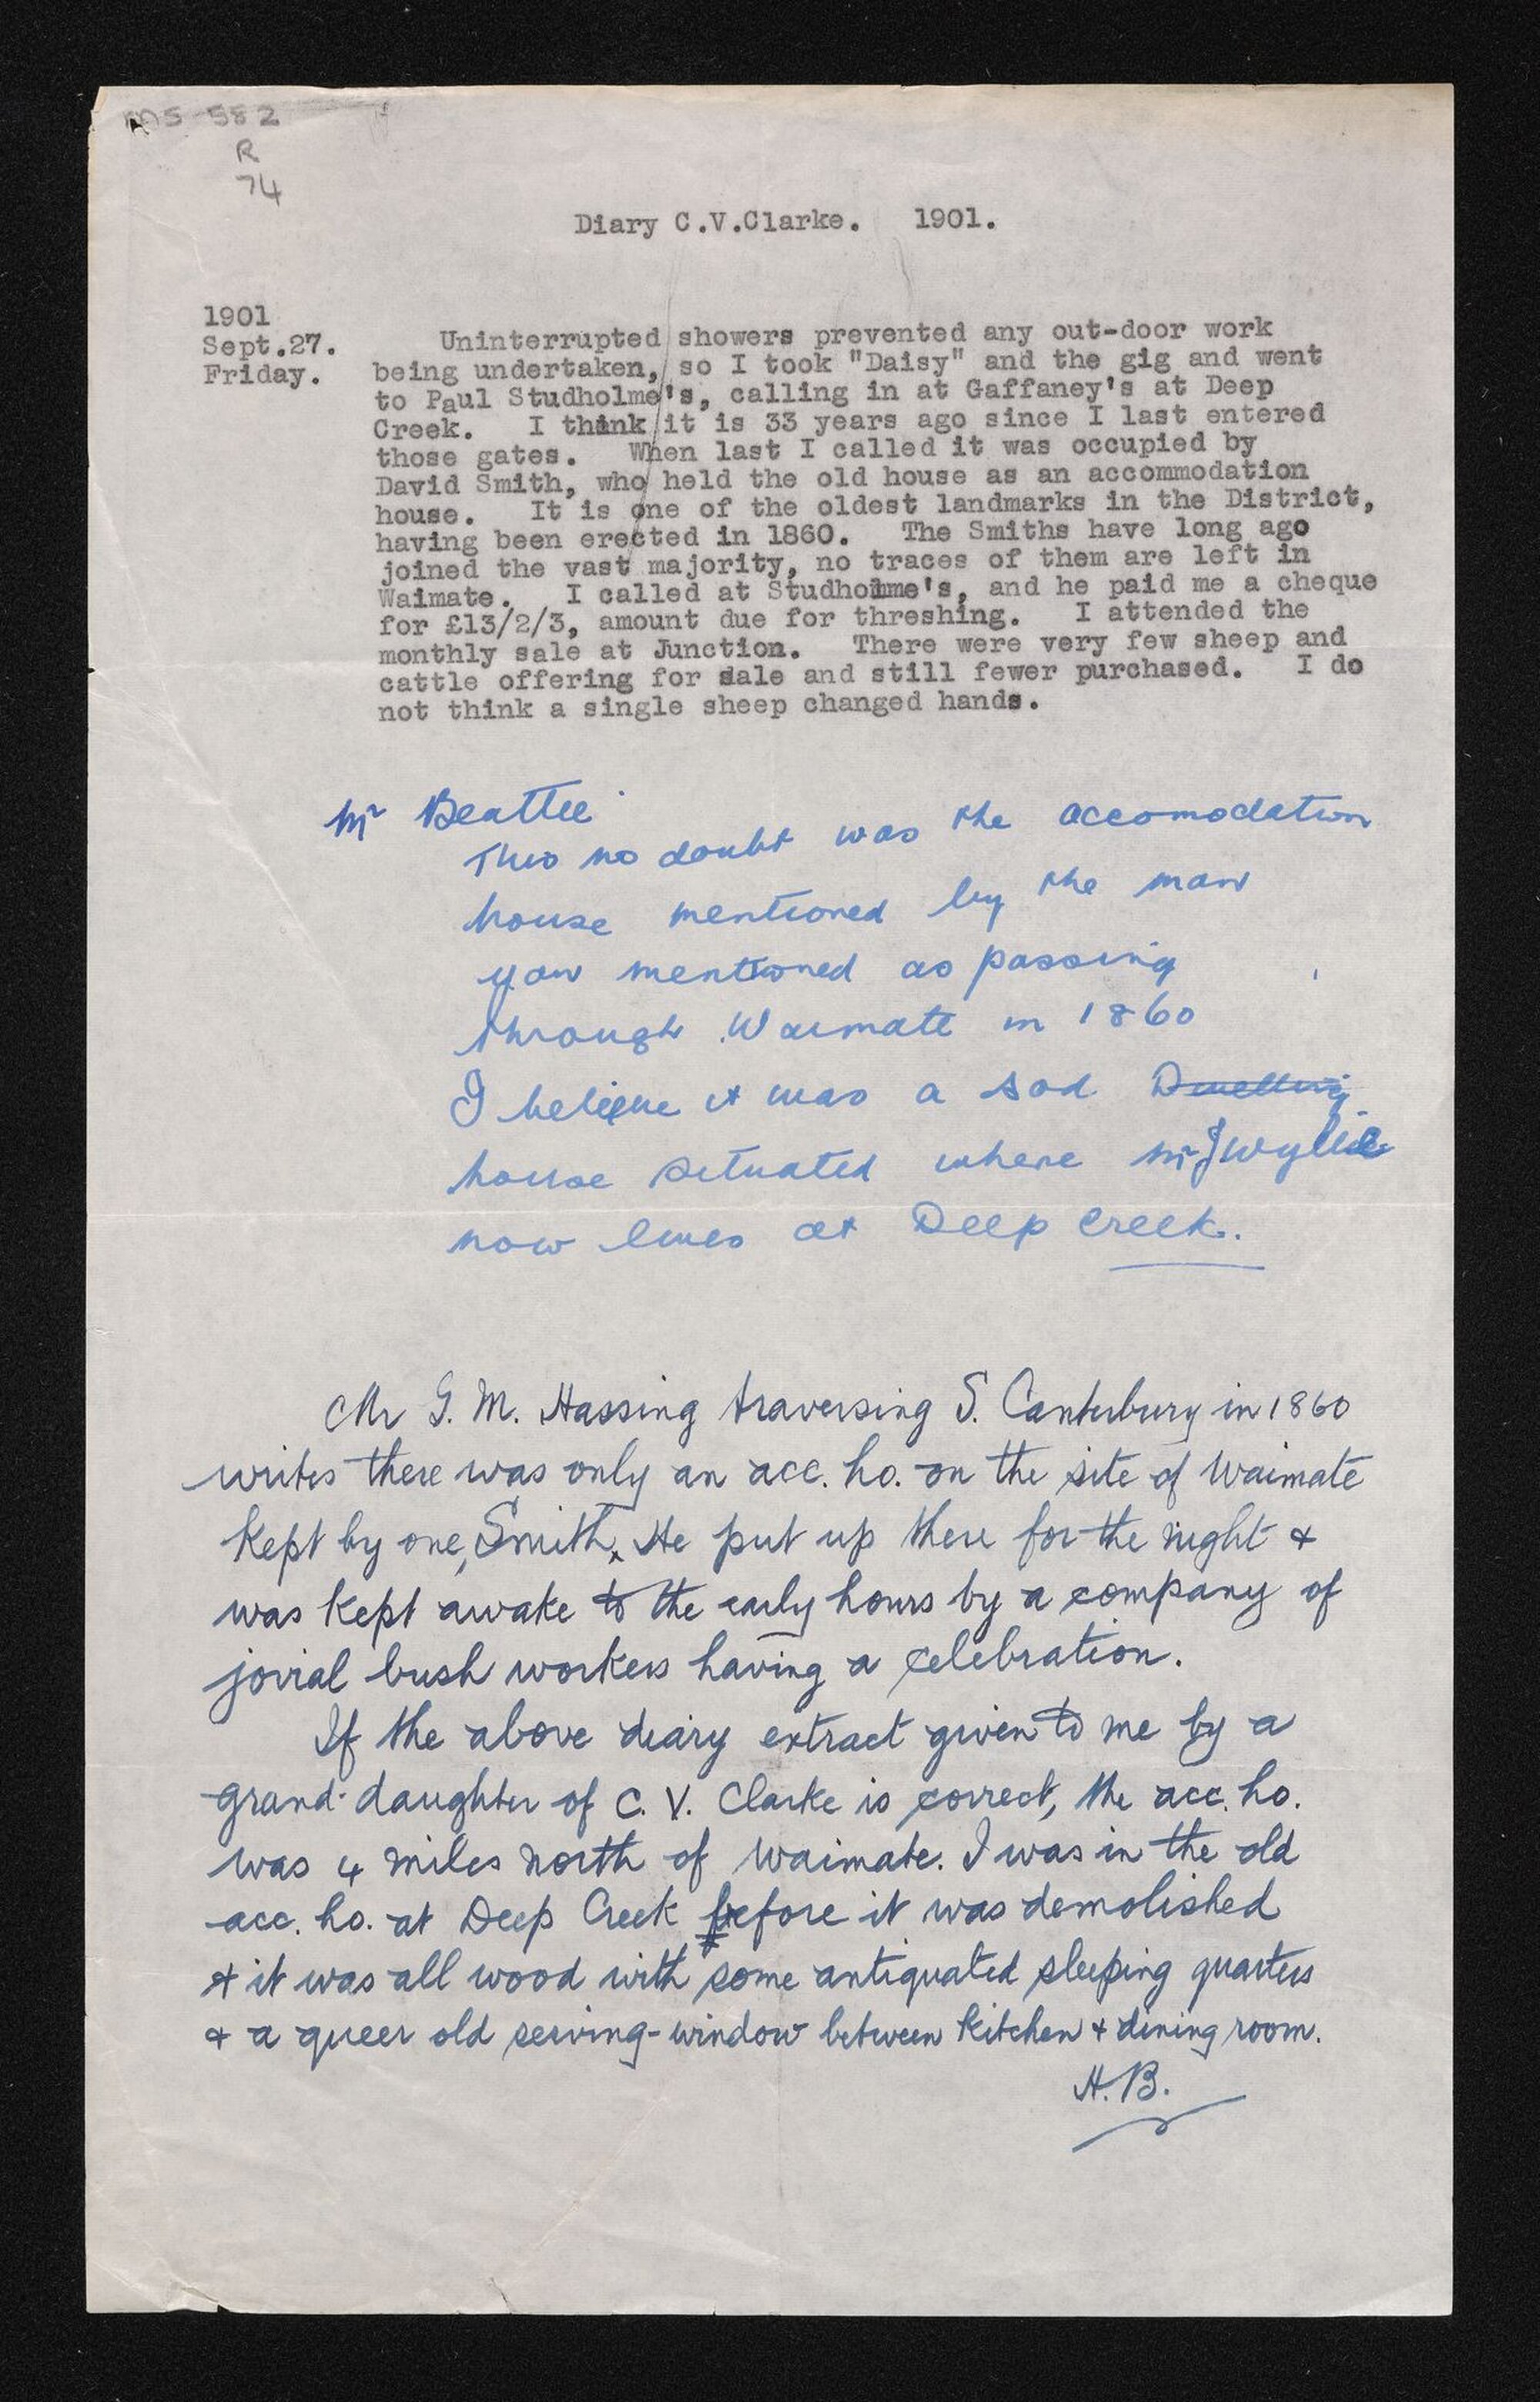 MS 582
R
74
Diary C.V.Clarke. 1901.
1901
Sept.27.
Friday.
Uninterrupted showers prevented any out-door work
being undertaken, so I took "Daisy" and the gig and went
to Paul Studholme's, calling in at Gaffaney's at Deep
Creek. I think it is 33 years ago since I last entered
those gates. When last I called it was occupied by
David Smith, who held the old house as an accommodation
house. It is one of the oldest landmarks in the District,
having been erected in 1860. The Smiths have long ago
joined the vast majority, no traces of them are left in
Waimate. I called at Studholme's, and he paid me a cheque
for £13/2/3, amount due for threshing. I attended the
monthly sale at Junction. There were very few sheep and
cattle offering for sale and still fewer purchased. I do
not think a single sheep changed hands.
Mr Beattie
This no doubt was the accomodation
house mentioned by the man
you mentioned as passing
through Waimate in 1860
I believe it was a sod Dwelling
house situated where Mr J Wyllie
now lives at Deep Creek.
Mr G. M. Hassing traversing S. Canterbury in 1860
writes there was only an acc. ho. on the site of Waimate
kept by one, Smith. He put up there for the night &
was kept awake to the early hours by a company of
jovial bush workers having a celebration.
If the above diary extract given to me by a
grand-daughter of C. V. Clarke is correct, the acc. ho.
was 4 miles north of Waimate. I was in the old
acc. ho. at Deep Creek before it was demolished
& it was all wood with some antiquated sleeping quarters
& a queer old serving-window between kitchen & dining room.
H.B.